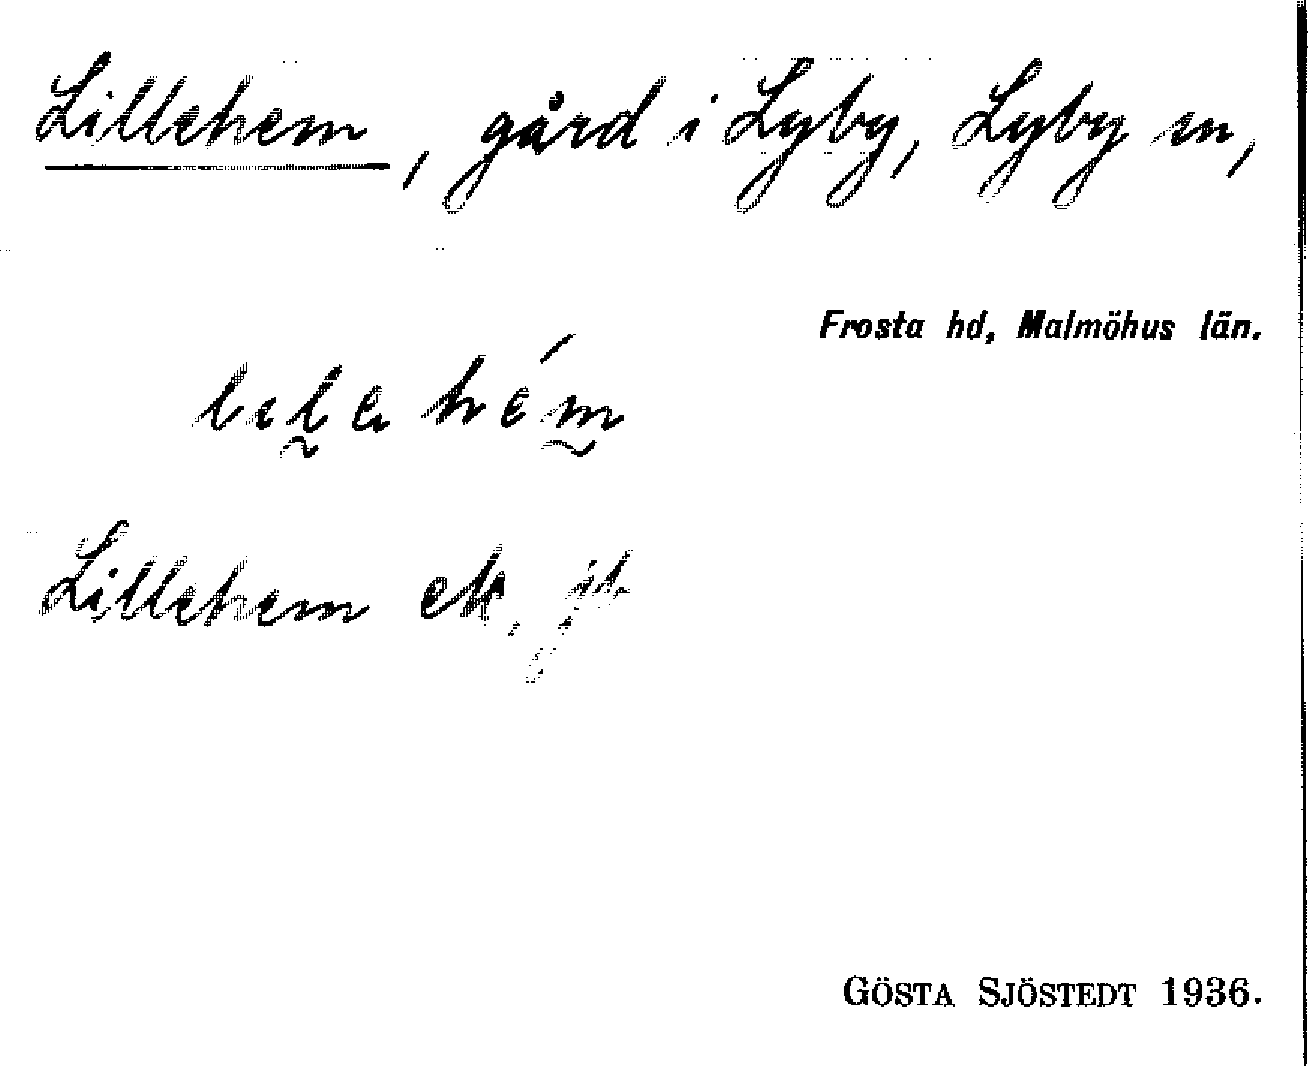 Lillehem, gård i Lyby, Lyby sn,
Frosta hd, Malmöhus län.
Lillehem ek.
GÖSTA SJÖSTEDT 1936.